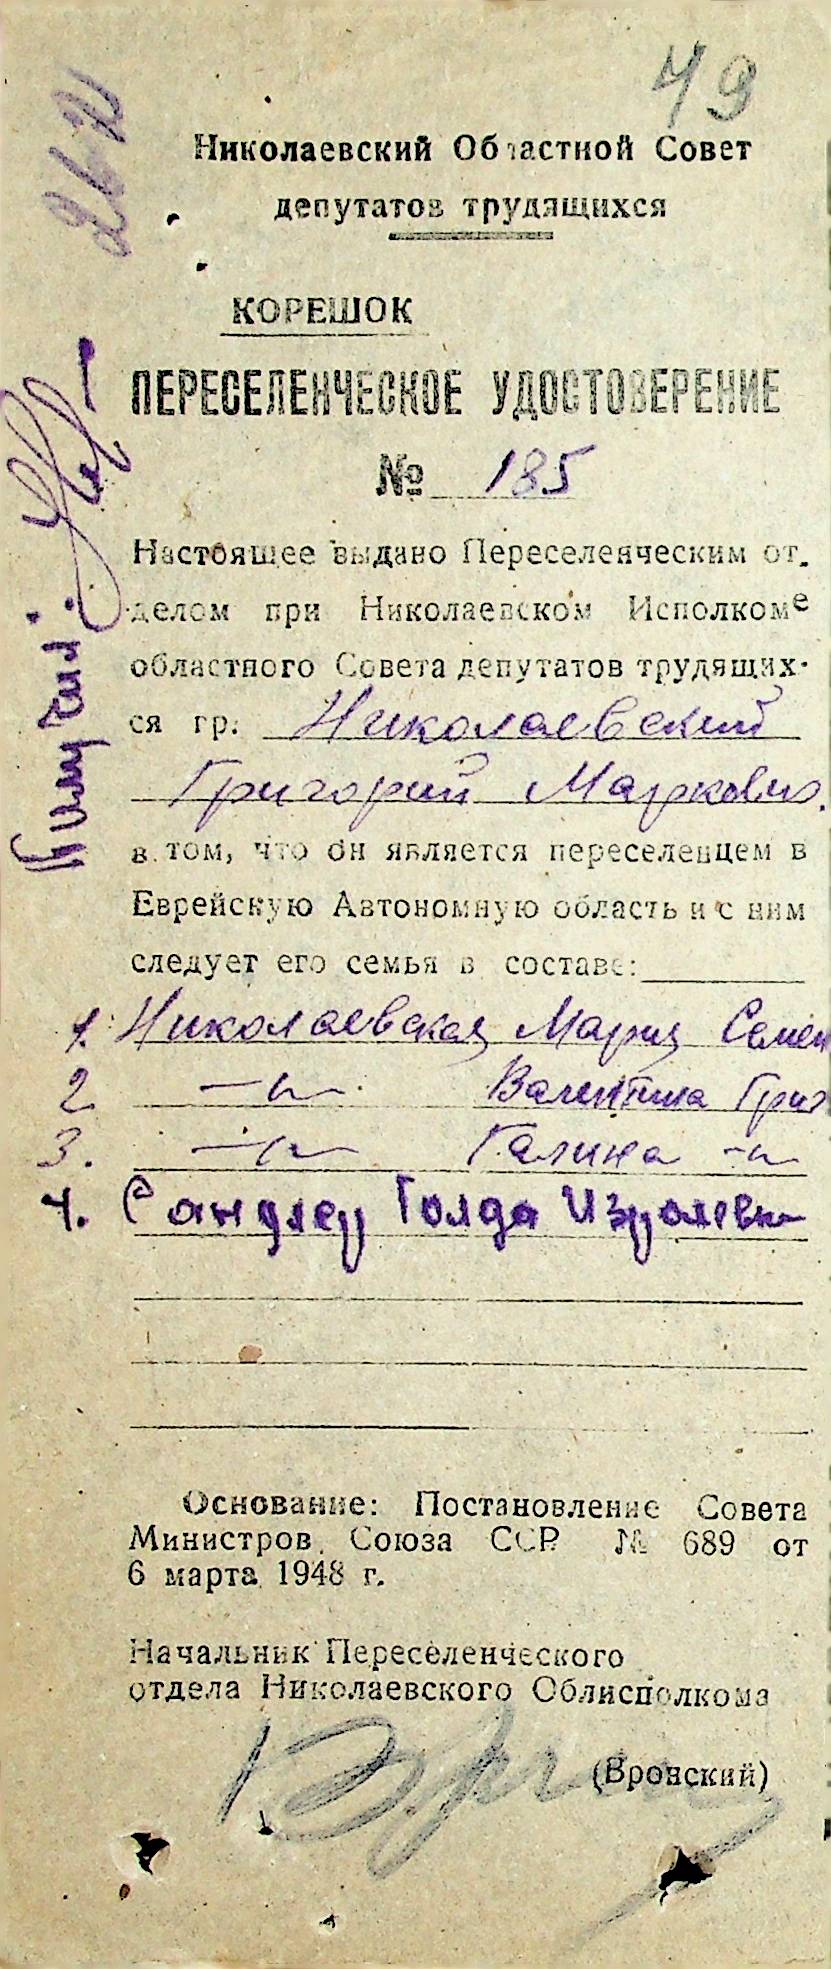 49
Николаевский Областной Совет
депутатов трудящихся
КОРЕШОК
ПЕРЕСЕЛЕНЧЕСКОЕ УДОСТОВЕРЕНИЕ
№ 185
Настоящее выдано Переселенческим от-
делом при Николаевском Исполкоме
областного Совета депутатов трудящих-
ся гр. Николаевский
Григорий Маркович
в том, что он является переселенцем в
Еврейскую Автономную область и с ним
следует его семья в составе:
1. Николаевская Мария Семен
2. —"— Валентина Григ
3. —"— Галина —"—
4. Сандлер Голда Изралевна
Основание: Постановление Совета
Министров Союза ССР № 689 от
6 марта 1948 г.
Начальник Переселенческого
отдела Николаевского Облисполкома
(Вронский)
Получил: